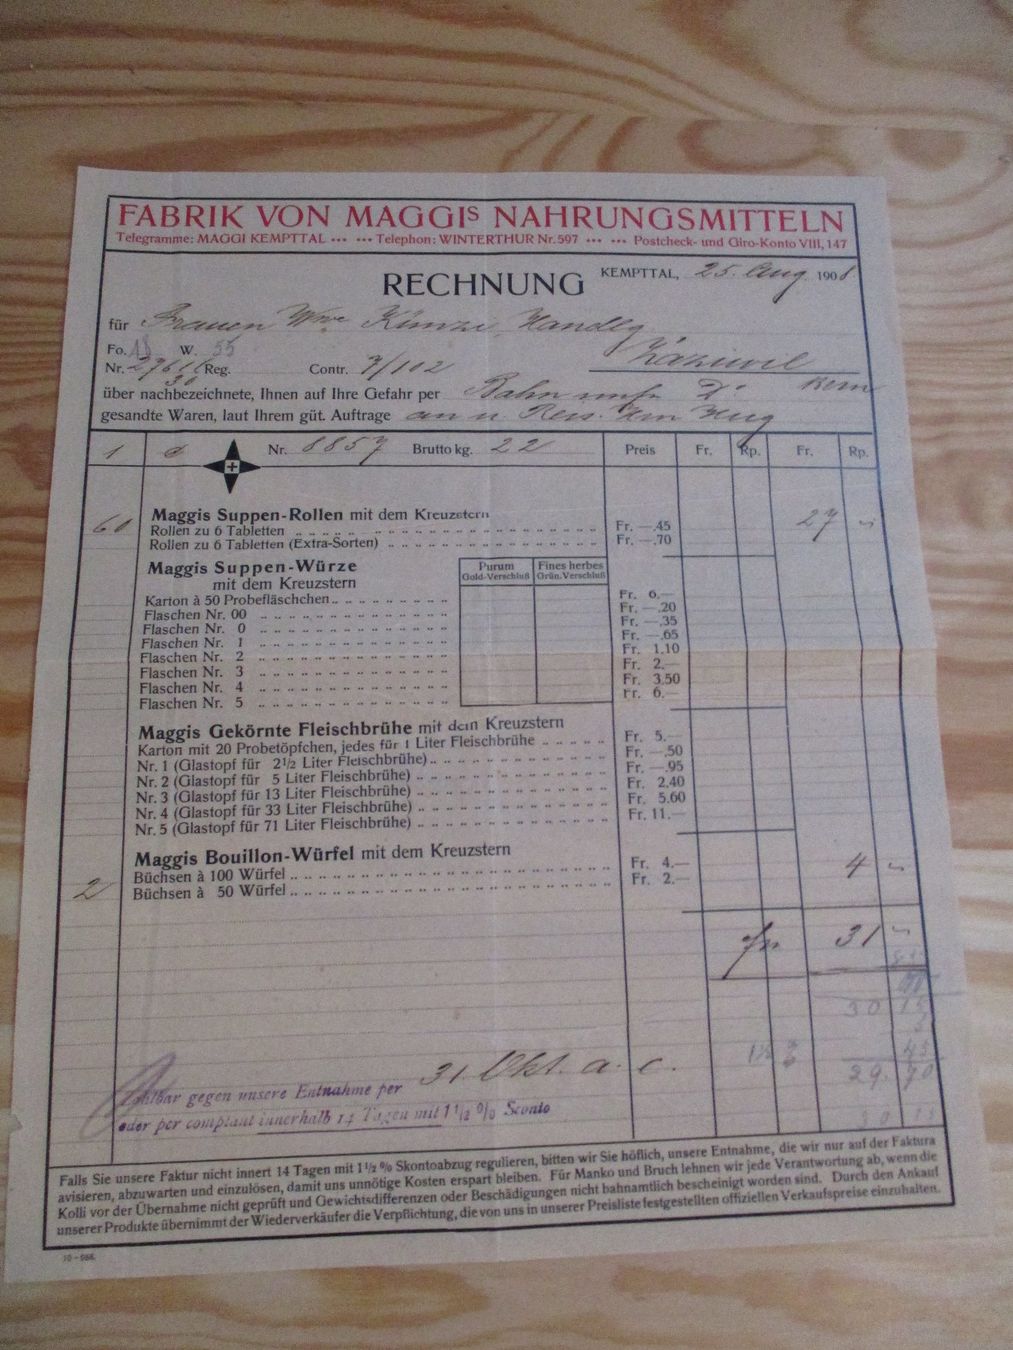 FABRIK VON MAGGIS NAHRUNGSMITTELN
Telegramme: MAGGI KEMPTTAL ••• ••• Telephon: WINTERTHUR Nr. 597 ••• ••• Postcheck- und Giro-Konto VIII, 147
RECHNUNG KEMPTTAL, 25. Aug. 1908.
für Frauen Wwe Künzi, Handlg
Fo. 18 W. 55 Zäziwil
Nr. Reg. Contr. 7/102
über nachbezeichnete, Ihnen auf Ihre Gefahr per Bahn Bern
gesandte Waren, laut Ihrem güt. Auftrage an u. Reis. Hug
1 Nr. 8857 Brutto kg. 22 Preis Fr. Rp. Fr. Rp.
Maggis Suppen-Rollen mit dem Kreuzstern
60 Rollen zu 6 Tabletten Fr. —.45 27
Rollen zu 6 Tabletten (Extra-Sorten) Fr. —.70
Maggis Suppen-Würze Purum Fines herbes
mit dem Kreuzstern Gold-Verschluß Grün. Verschluß
Karton à 50 Probefläschchen Fr. 6.—
Flaschen Nr. 00 Fr. —.20
Flaschen Nr. 0 Fr. —.35
Flaschen Nr. 1 Fr. —.65
Flaschen Nr. 2 Fr. 1.10
Flaschen Nr. 3 Fr. 2.—
Flaschen Nr. 4 Fr. 3.50
Flaschen Nr. 5 Fr. 6.—
Maggis Gekörnte Fleischbrühe mit dem Kreuzstern
Karton mit 20 Probetöpfchen, jedes für 1 Liter Fleischbrühe Fr. 5.—
Nr. 1 (Glastopf für 2½ Liter Fleischbrühe) Fr. —.50
Nr. 2 (Glastopf für 5 Liter Fleischbrühe) Fr. —.95
Nr. 3 (Glastopf für 13 Liter Fleischbrühe) Fr. 2.40
Nr. 4 (Glastopf für 33 Liter Fleischbrühe) Fr. 5.60
Nr. 5 (Glastopf für 71 Liter Fleischbrühe) Fr. 11.—
Maggis Bouillon-Würfel mit dem Kreuzstern
Büchsen à 100 Würfel Fr. 4.— 4
2 Büchsen à 50 Würfel Fr. 2.—
Fr. 31
30 15
1½ 45
29. 70
30 15
Zahlbar gegen unsere Entnahme per 31. Okt. a. c.
oder per comptant innerhalb 14 Tagen mit 1½ % Sconto
Falls Sie unsere Faktur nicht innert 14 Tagen mit 1½ % Skontoabzug regulieren, bitten wir Sie höflich, unsere Entnahme, die wir nur auf der Faktura
avisieren, abzuwarten und einzulösen, damit uns unnötige Kosten erspart bleiben. Für Manko und Bruch lehnen wir jede Verantwortung ab, wenn die
Kolli vor der Übernahme nicht geprüft und Gewichtsdifferenzen oder Beschädigungen nicht bahnamtlich bescheinigt worden sind. Durch den Ankauf
unserer Produkte übernimmt der Wiederverkäufer die Verpflichtung, die von uns in unserer Preisliste festgestellten offiziellen Verkaufspreise einzuhalten.